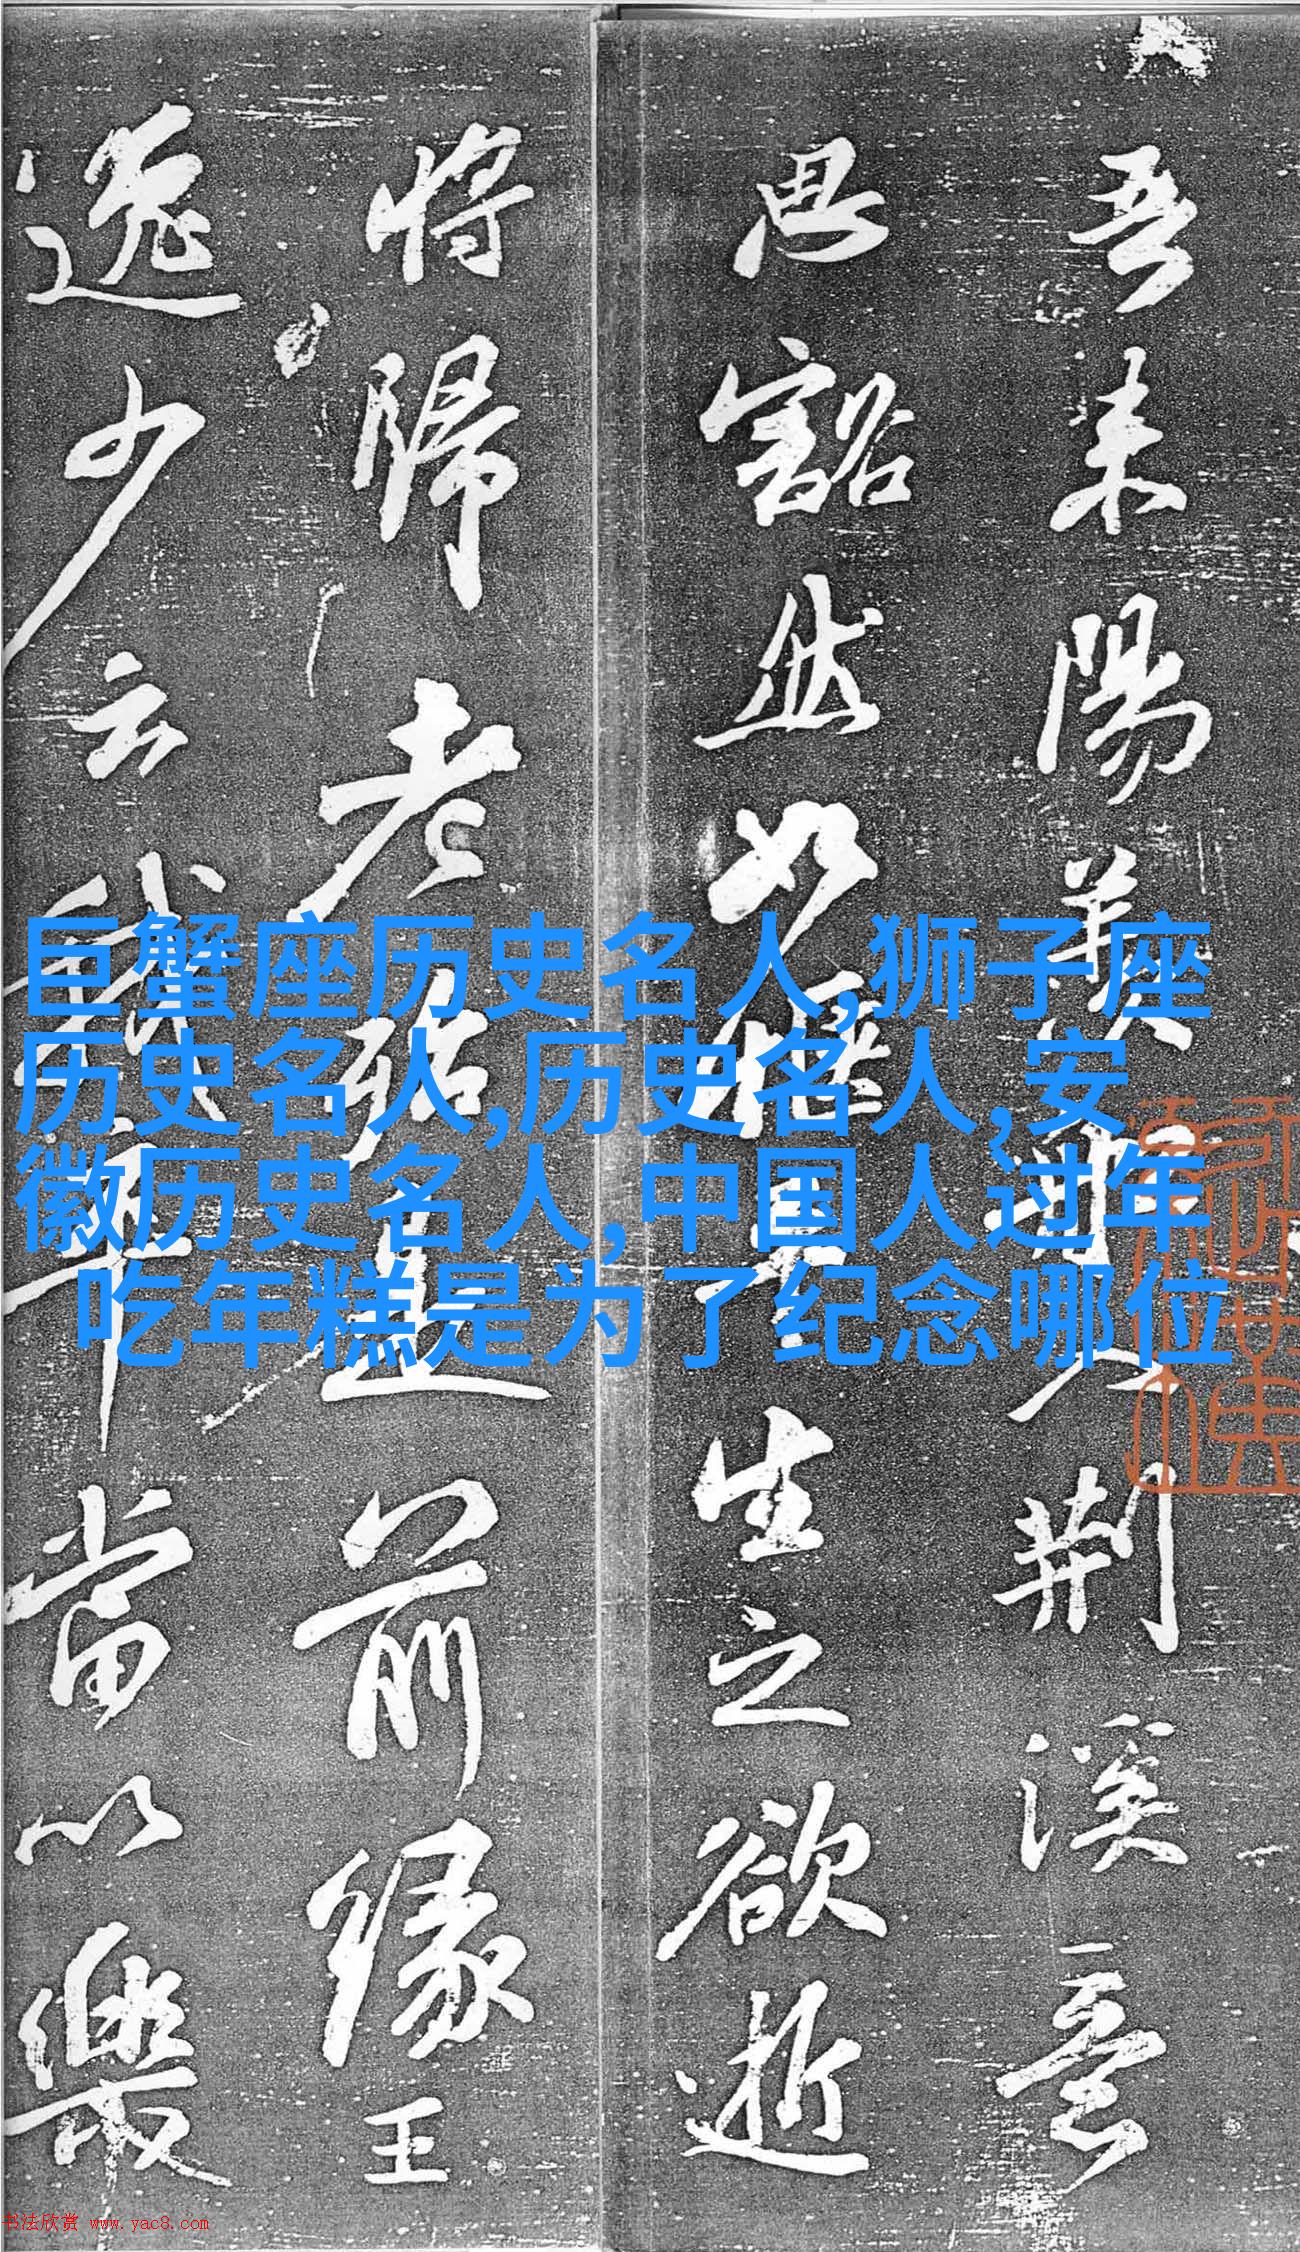 吾来陽羡船入荆溪意
思豁然如惬平生之欲逝
将歸老殆是前緣王
逸少云我卒當以樂
巨蟹座历史名人,狮子座
历史名人,历史名人,安
徽历史名人,中国人过年
吃年糕是为了纪念哪位
书法欣赏 www.yac8.com